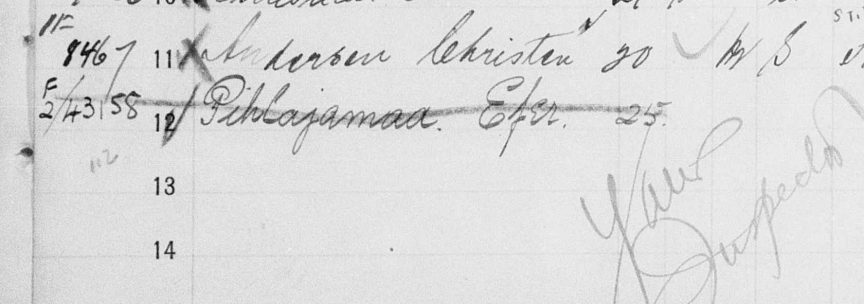 11F
8467 11 X Andersen Christen 20 M S
F
2/43158 12 Pihlajamaa. Efer. 25.
112
13
14
Inspector